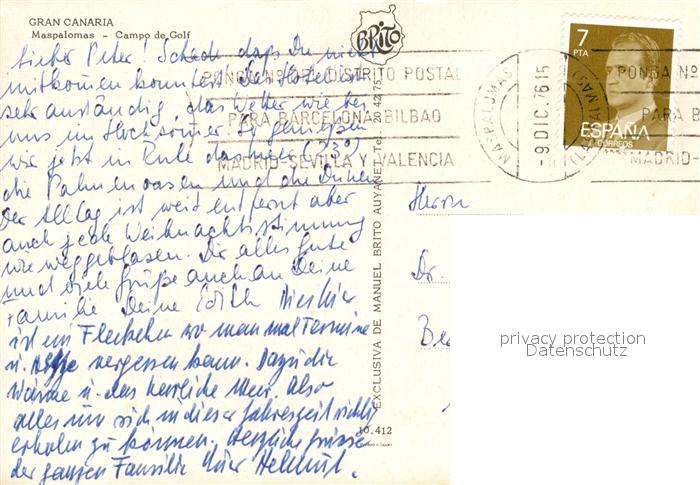 GRAN CANARIA
Maspalomas - Campo de Golf
BRITO
Lieber Peter! Schade daß Du nicht
mitkommen konntest. Das Hotel ist
sehr anständig, das Wetter wie bei
uns im Hochsommer. Es genießen
wir jetzt in Ruhe das Meer (23°)
die Palmenoasen und die Dünen
Der Alltag ist weit entfernt aber
auch jede Weihnachtsstimmung
wie weggeblasen. Dir alles Gute
und viele Grüße auch an Deine
Familie Deine Edith Hier
ist ein Fleckchen wo man mal Termine
u. vergessen kann. Dazu die
Wärme u. das herrliche Meer. Also
alles um sich in dieser Jahreszeit richtig
erholen zu können. Herzliche Grüsse
der ganzen Familie Euer Helmut.
PONGA Nº DISTRITO POSTAL
PARA BARCELONA-BILBAO
MADRID-SEVILLA Y VALENCIA
MASPALOMAS
-9 DIC. 76 15
(LAS PALMAS)
7
PTA
ESPAÑA
CORREOS
PONGA Nº
PARA B
MADRID-
EXCLUSIVA DE MANUEL BRITO AUYANET - Tel. 26 42 75
10.412
Printed in Spain
Herrn
Dr.
Be
privacy protection
Datenschutz